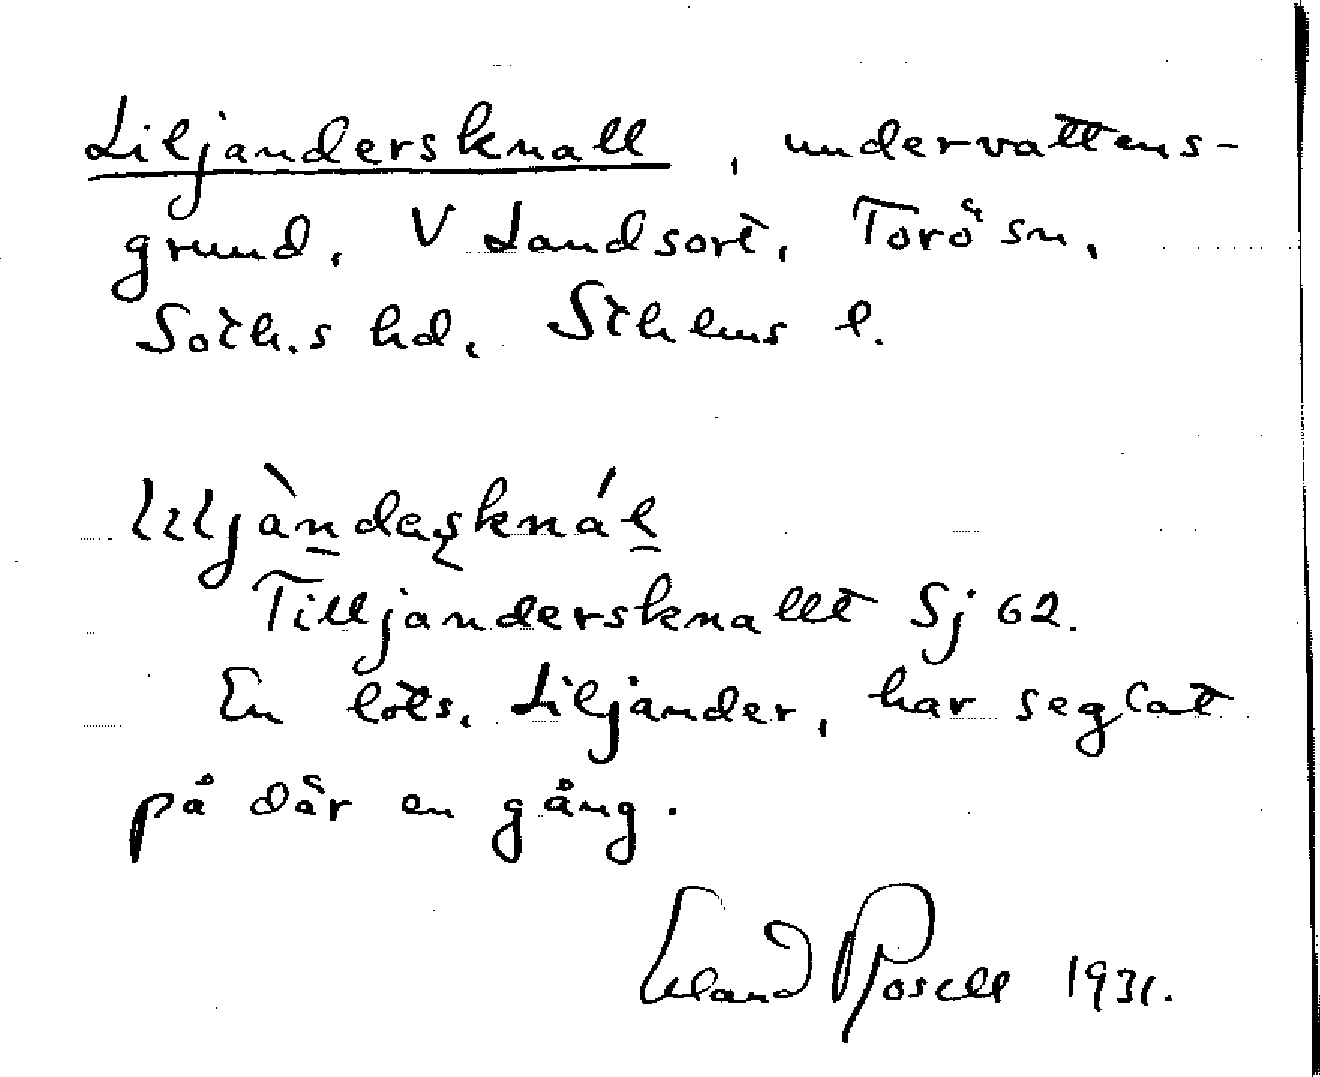 Liljandersknall, undervattens-
grund, V Landsort, Torö sn,
Soth.s hd, Sthlms l.
lıljàndaʂknál
Tilljandersknallt Sj 62.
En lots, Liljander, har seglat
på där en gång.
Erland Rosell 1931.